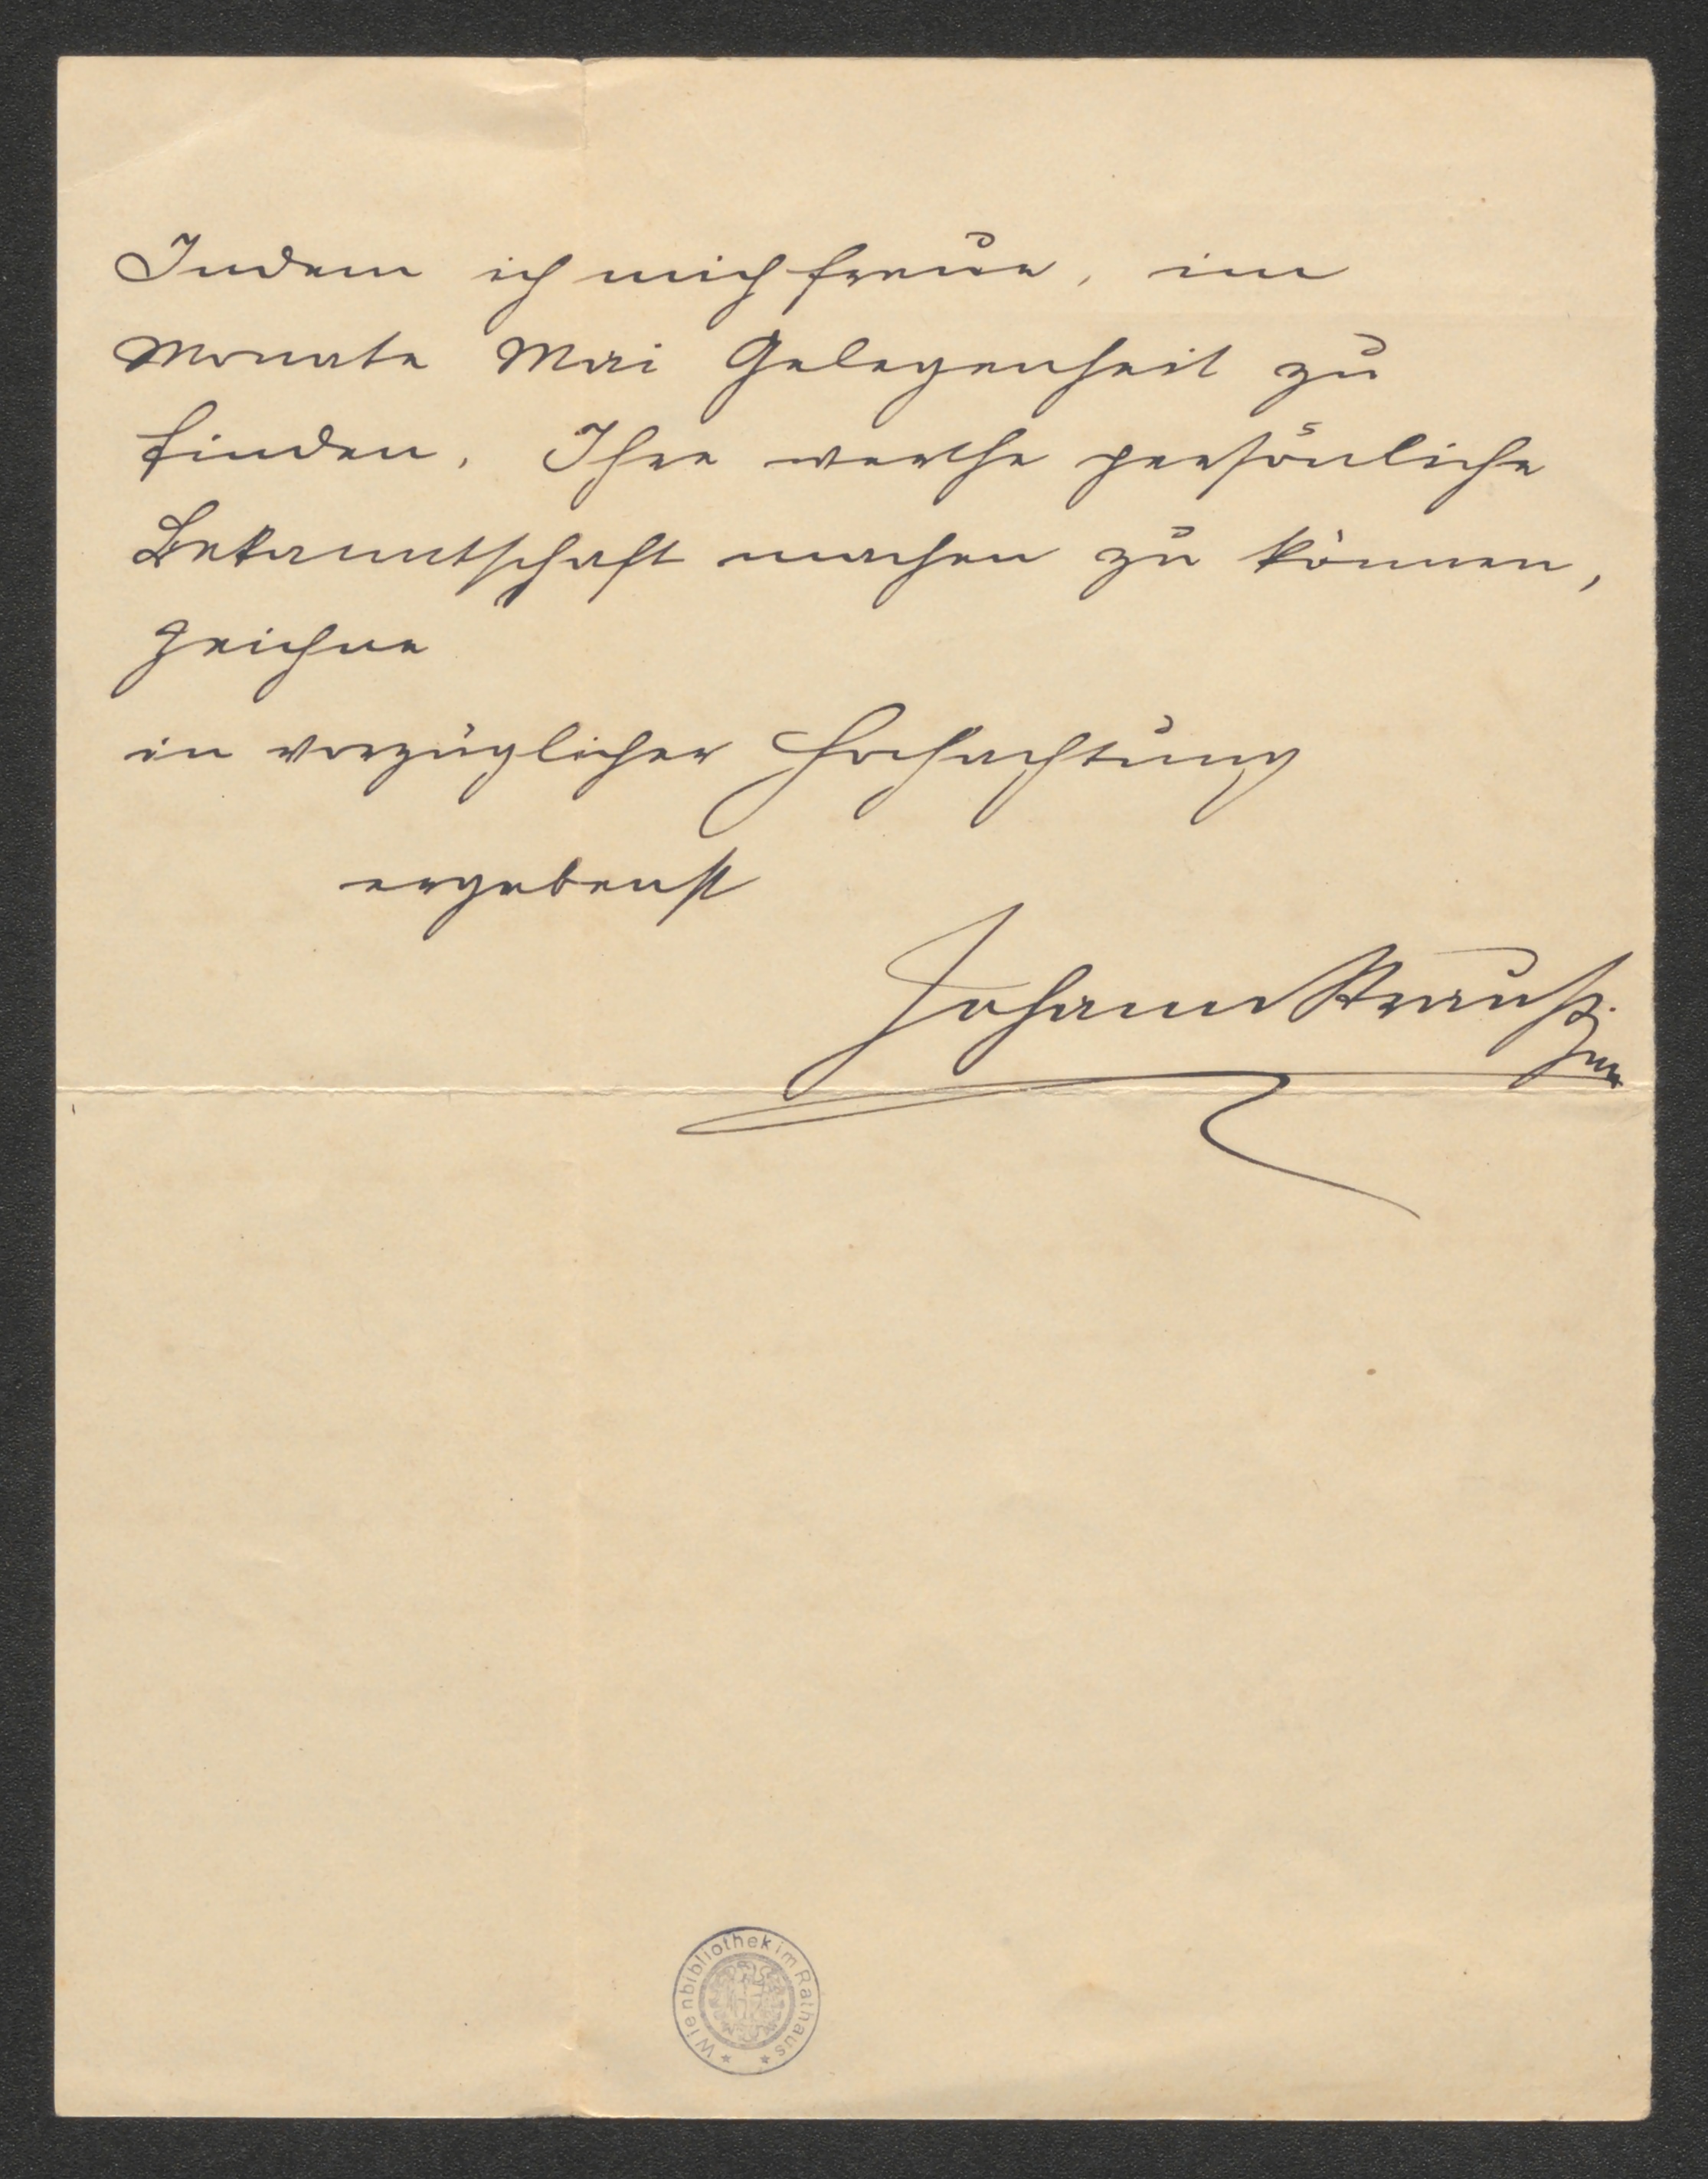 Indem ich mich freue, im
Monate Mai Gelegenheit zu
finden, Ihre werthe persönliche
Bekanntschaft machen zu können,
zeichne
in vorzüglicher Hochachtung
ergebenst
Johann Strauß
jun
Wienbibliothek im Rathaus